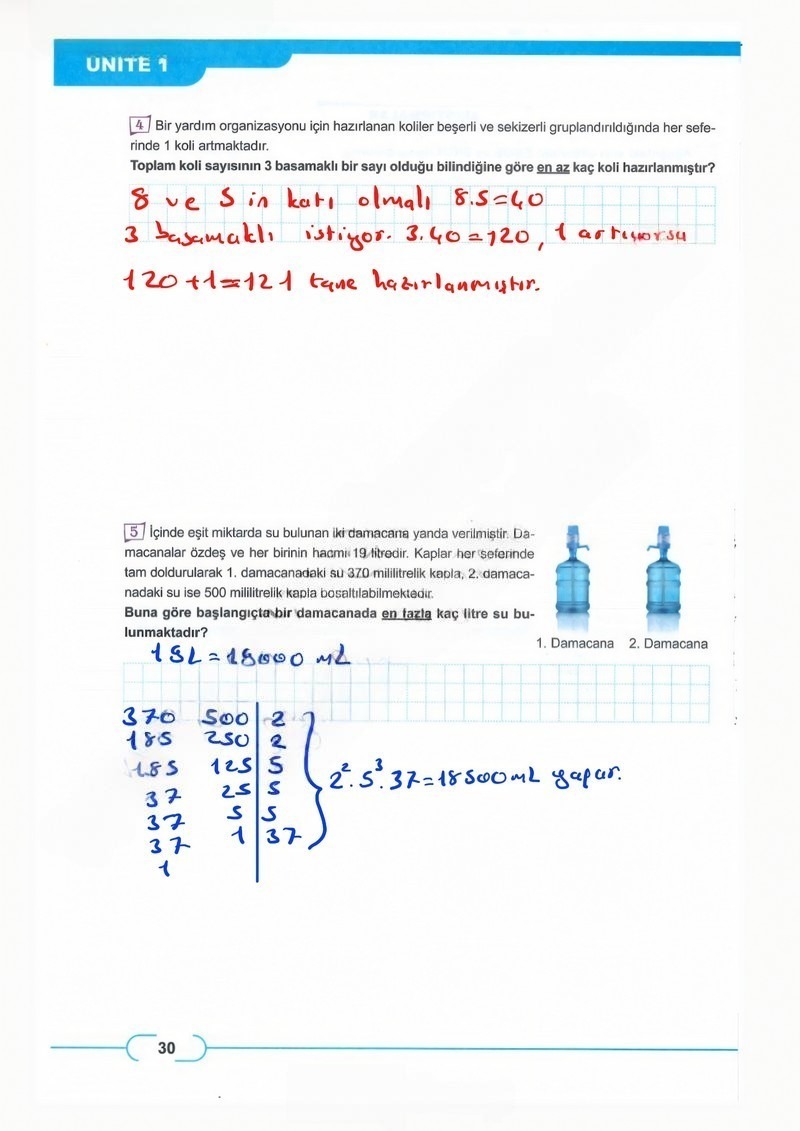 ÜNİTE 1
4 Bir yardım organizasyonu için hazırlanan koliler beşerli ve sekizerli gruplandırıldığında her sefe-
rinde 1 koli artmaktadır.
Toplam koli sayısının 3 basamaklı bir sayı olduğu bilindiğine göre en az kaç koli hazırlanmıştır?
8 ve 5 in katı olmalı 8.5=40
3 basamaklı istiyor. 3.40=120, 1 artıyorsa
120+1=121 tane hazırlanmıştır.
5 İçinde eşit miktarda su bulunan iki damacana yanda verilmiştir. Da-
macanalar özdeş ve her birinin hacmi 19 litredir. Kaplar her seferinde
tam doldurularak 1. damacanadaki su 370 mililitrelik kapla, 2. damaca-
nadaki su ise 500 mililitrelik kapla boşaltılabilmektedir.
Buna göre başlangıçta bir damacanada en fazla kaç litre su bu-
lunmaktadır?
1. Damacana 2. Damacana
19L=19000 mL
370 500 2
185 250 2
185 125 5
37 25 5
37 5 5
37 1 37
1
2².5³.37=18500mL yapar.
30